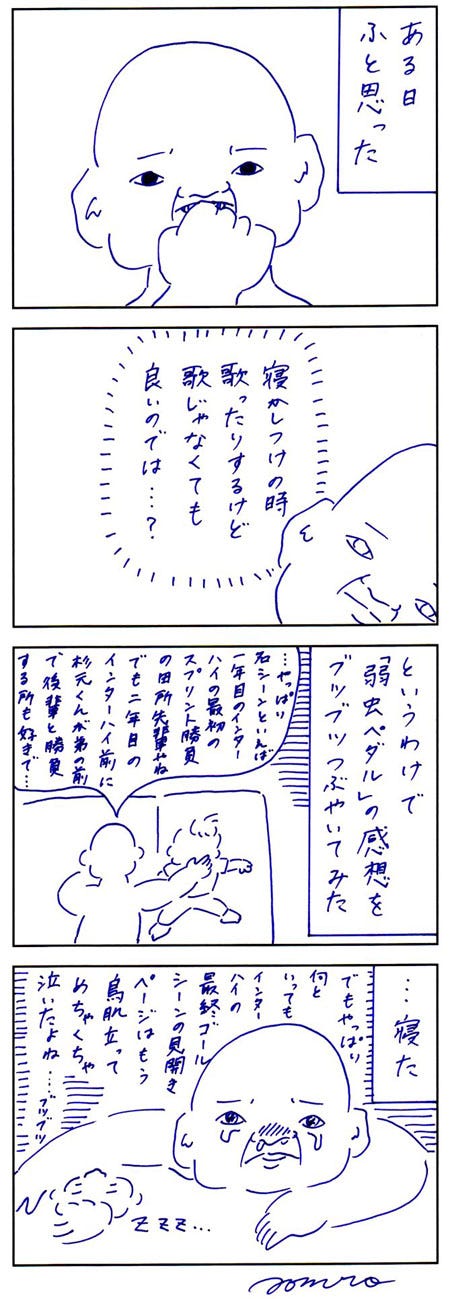 ある日
ふと思った
寝かしつけの時
歌ったりするけど
歌じゃなくても
良いのでは…?
というわけで
「弱虫ペダル」の感想を
ブツブツつぶやいてみた
…やっぱり
名シーンといえば
一年目のインター
ハイの最初の
スプリント勝負
の田所先輩やね
でも二年目の
インターハイ前に
杉元くんが弟の前
で後輩と勝負
する所も好きで…
…寝た
でもやっぱり
何と
いっても
インター
ハイの
最終ゴール
シーンの見開き
ページはもう
鳥肌立って
めちゃくちゃ
泣いたよね……ブツブツ
zzz…